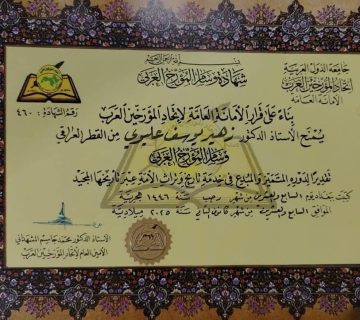 جامعة الدول العربية
إتحاد المؤرخين العرب
الأمانة العامة
شهادة وسام المؤرخ العربي
رقم الشهادة: ٤٦٠
بناءً على قرار الأمانة العامة لإتحاد المؤرخين العرب
يمنح الأستاذ الدكتور زهير يوسف عليوي من القطر العراقي
وسام المؤرخ العربي
تقديراً لدوره المتميز والمبدع في خدمة تاريخ وتراث الأمة عبر تاريخها المجيد
كتبت ببغداد يوم السابع والعشرين من شهر رجب سنة ١٤٤٦ هجرية
الموافق السابع والعشرين من شهر كانون الثاني سنة ٢٠٢٥ ميلادية
الأستاذ الدكتور محمد جاسم المشهداني
الأمين العام لإتحاد المؤرخين العرب